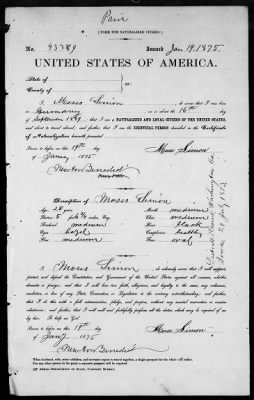 Paid
[FORM FOR NATURALIZED CITIZEN.]
No. 43289 Issued Jan 19. 1875
UNITED STATES OF AMERICA.
State of
County of
I, Moses Simon, do swear that I was born
in Germany on or about the 16th day
of September 1849; that I am a NATURALIZED AND LOYAL CITIZEN OF THE UNITED STATES,
and about to travel abroad; and further, that I am the IDENTICAL PERSON described in the Certificate
of Naturalization herewith presented.
Sworn to before me this 18th day
of January 1875
Moses Simon
Newton Benedict
Notary Public
Description of Moses Simon
Age 25
Stature 5 feet inches, Eng.
Forehead medium
Eye hazel
Nose medium
Mouth medium
Chin medium
Hair black
Complexion healthy
Face oval
I, Moses Simon, do solemnly swear that I will support,
protect, and defend the Constitution and Government of the United States against all enemies, whether
domestic or foreign; and that I will bear true faith, allegiance, and loyalty to the same, any ordinance,
resolution, or law of any State, Convention, or Legislature to the contrary notwithstanding; and further,
that I do this with a full determination, pledge, and purpose, without any mental reservation or evasion
whatsoever; and further, that I will well and faithfully perform all the duties which may be required of me
by law. So help me God.
Sworn to before me this 18th day
of Jany 1875
Moses Simon
Newton Benedict
When husband, wife, minor children, and servants expect to travel together, a single passport for the whole will suffice.
For any other person in the party a separate passport will be required.